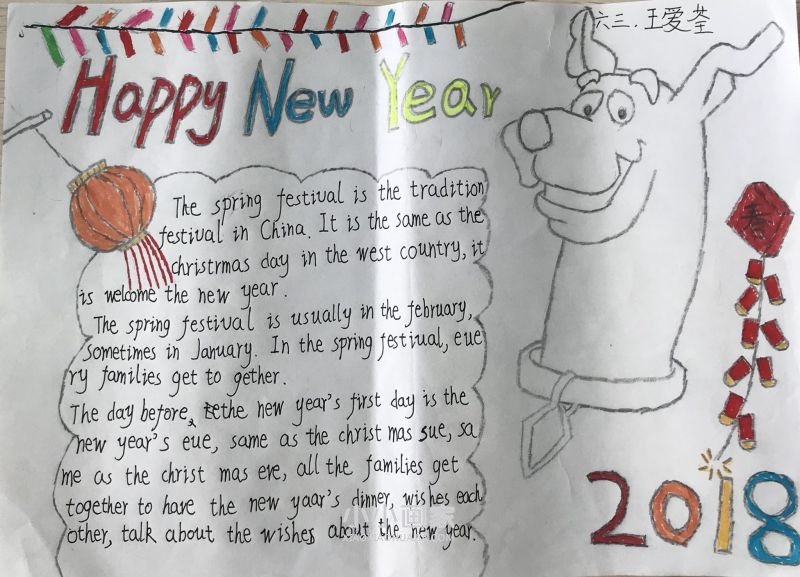 六三.王爱荃
Happy New Year
The spring festival is the tradition
festival in China. It is the same as the
christrmas day in the west country, it
is welcome the new year.
The spring festival is usually in the february,
sometimes in January. In the spring festival, eue
ry families get to gether.
The day before, the new year's first day is the
new year's eue, same as the christ mas sue, sa
me as the christ mas eve, all the families get
together to have the new yaar's dinner, wishes each
other, talk about the wishes about the new year.
春
2018